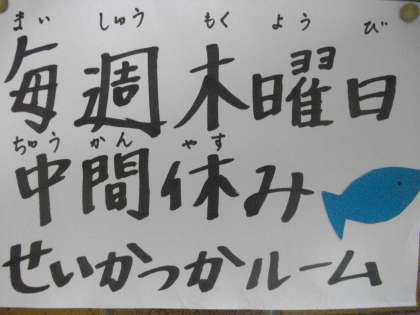 まい しゅう もく よう び
毎週木曜日
ちゅう かん やす
中間休み
せいかつかルーム